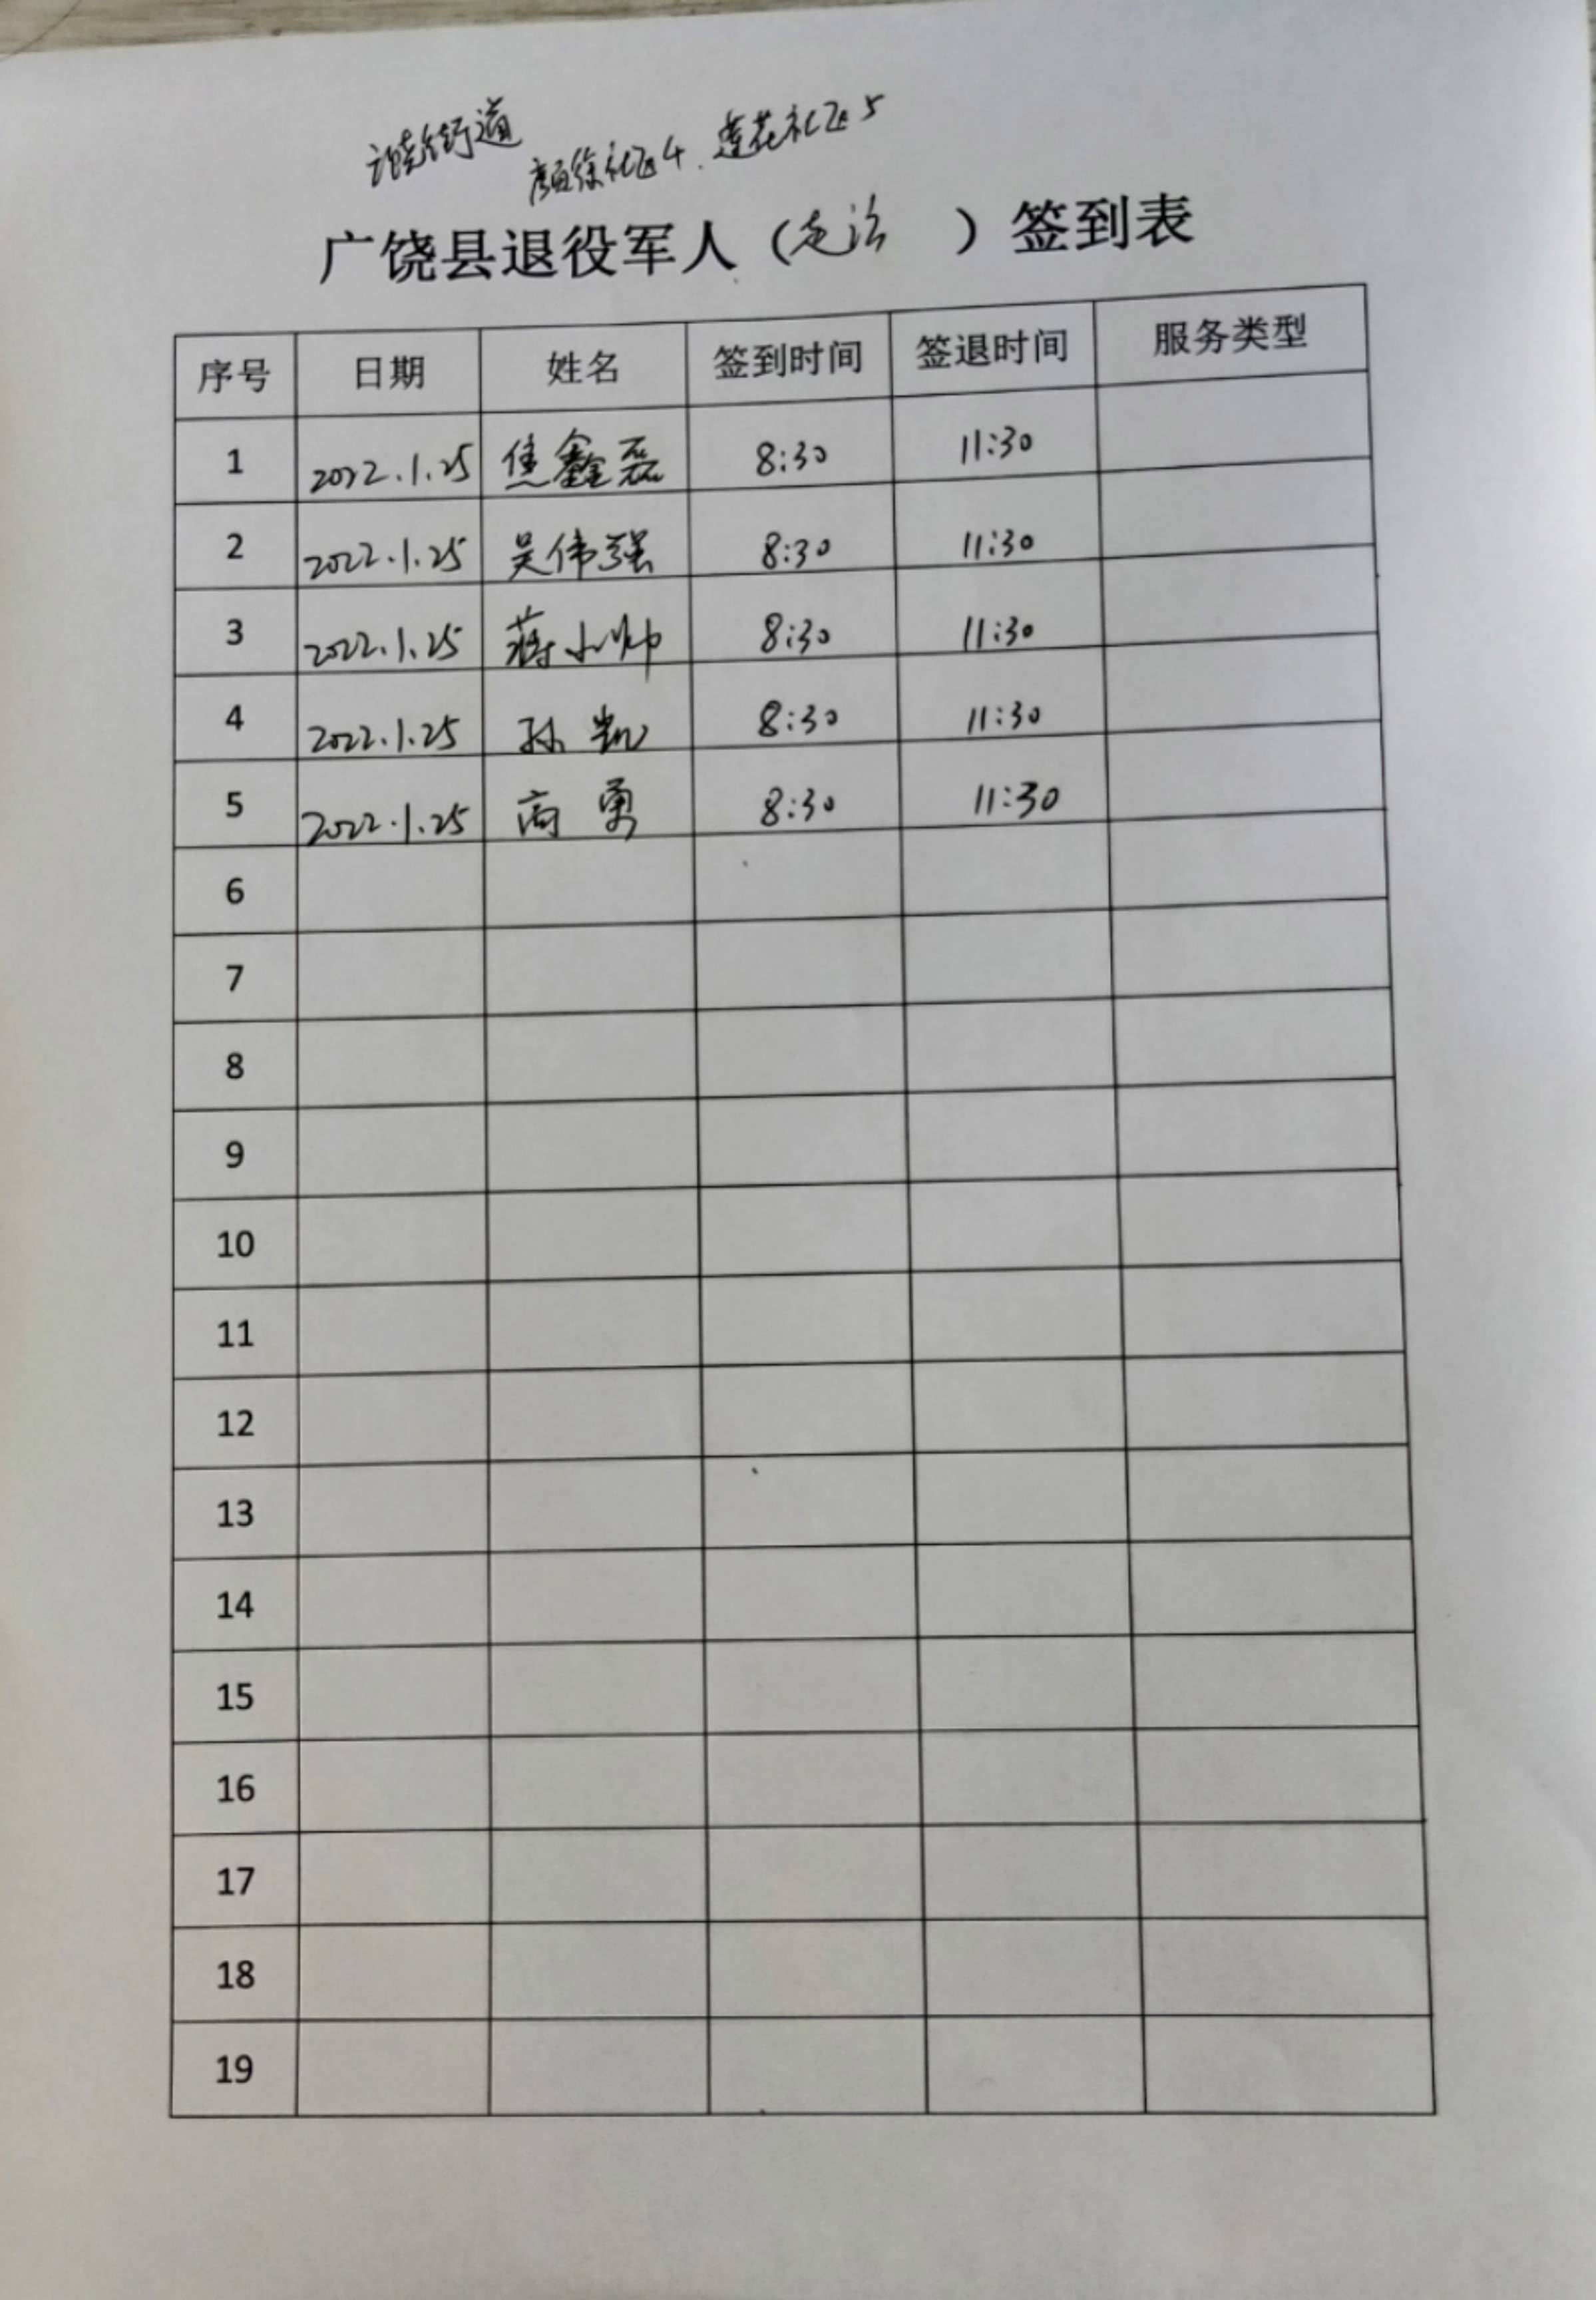 街道
颜徐社区4、莲花社区5
广饶县退役军人（走访）签到表
序号 日期 姓名 签到时间 签退时间 服务类型
1 2022.1.25 焦鑫磊 8:30 11:30
2 2022.1.25 吴伟强 8:30 11:30
3 2022.1.25 蒋小帅 8:30 11:30
4 2022.1.25 孙凯 8:30 11:30
5 2022.1.25 高勇 8:30 11:30
6
7
8
9
10
11
12
13
14
15
16
17
18
19